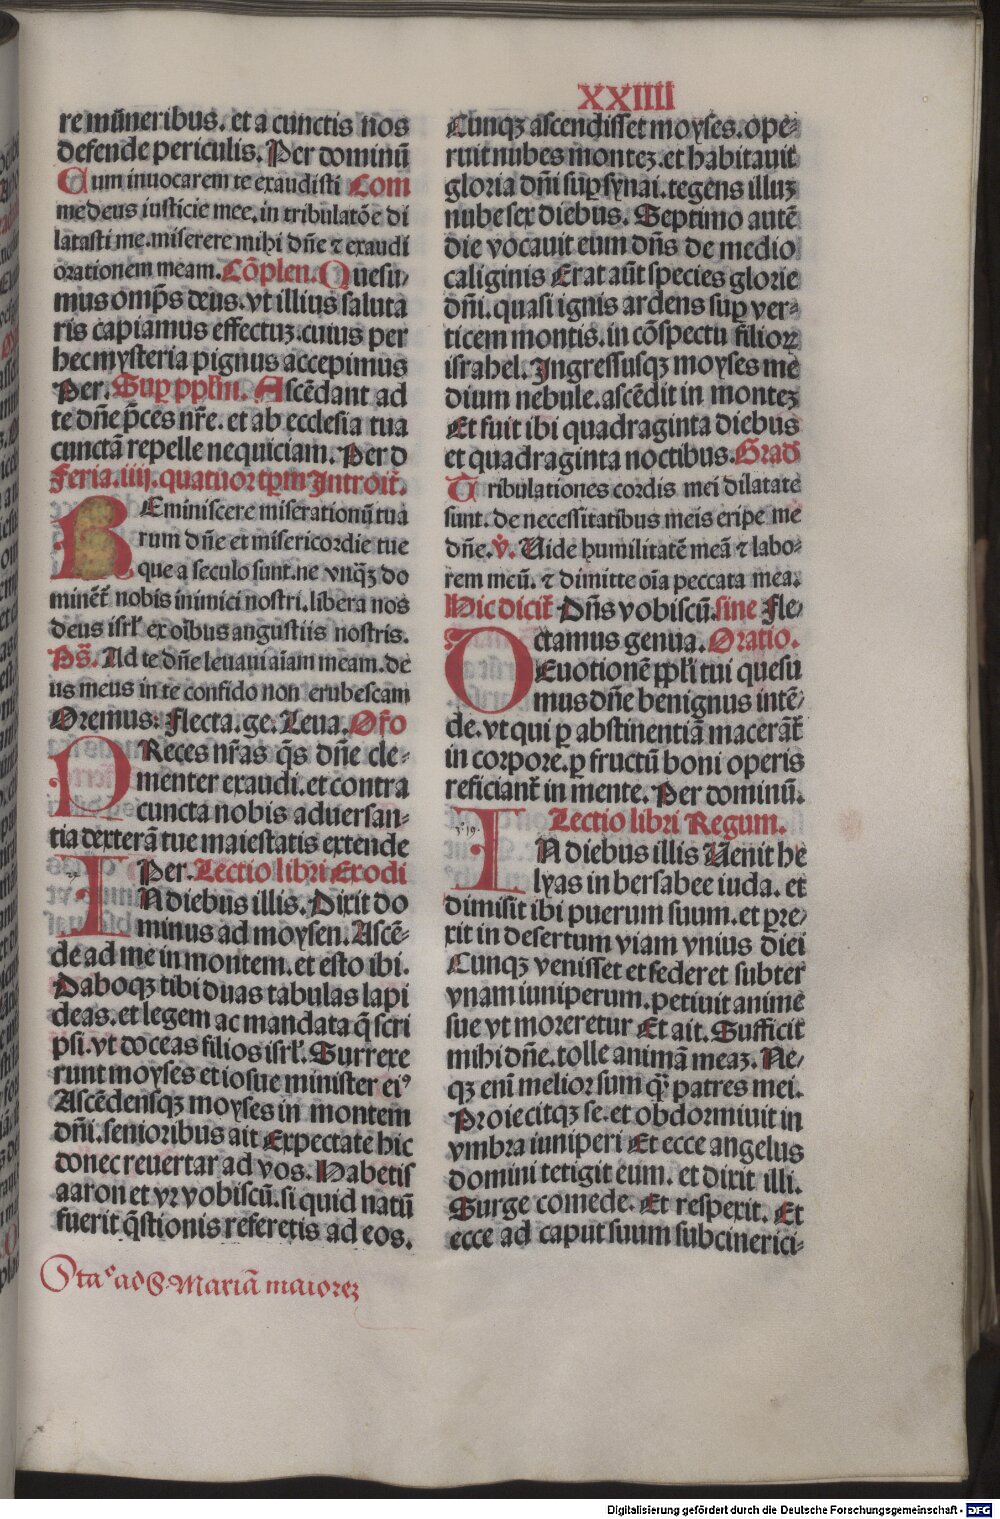 XXIIII
re mūneribus. et a cunctis nos
defende periculis. Per dominū
Cum inuocarem te exaudisti Com
me deus iusticie mee. in tribulatōe di
latasti me. miserere mihi dñe ⁊ exaudi
orationem meam. Cōplen. Quesu-
mus omp̄s deus. vt illius saluta
ris capiamus effectuꝫ. cuius per
hec mysteria pignus accepimus
Per. Suꝑ ppl̄m. Ascēdant ad
te dñe p̄ces nr̄e. et ab ecclesia tua
cunctā repelle nequiciam. Per d
Feria. iiij. quatuor tꝑm Introit̄.
REminiscere miserationū tua
rum dñe et misericordie tue
que a seculo sunt. ne vnq̄ꝫ do
minēt̄ nobis inimici nostri. libera nos
deus isrl̄ ex oībus angustiis nostris.
Ps̄. Ad te dñe leuaui aīam meam. de
us meus in te confido non erubescam
Oremus: Flecta. ge. Leua. Or̄o
PReces nr̄as q̄s dñe cle-
menter exaudi. et contra
cuncta nobis aduersan-
tia dexterā tue maiestatis extende
Per. Lectio libri Exodi
IN diebus illis. Dixit do
minus ad moysen. Ascē-
de ad me in montem. et esto ibi.
Daboqꝫ tibi duas tabulas lapi
deas. et legem ac mandata q̄ scri
psi. vt doceas filios isrl̄. Surrexe
runt moyses et iosue minister eiꝰ
Ascēdensqꝫ moyses in montem
dñi. senioribus ait Expectate hic
donec reuertar ad vos. Habetis
aaron et vr vobiscū. si quid natū
fuerit q̄stionis referetis ad eos.
Sta° ad S. Mariā maioreꝫ
Cunqꝫ ascendisset moyses. ope-
ruit nubes monteꝫ. et habitauit
gloria dñi suꝑ synai. tegens illuꝫ
nube sex diebus. Septimo autē
die vocauit eum dñs de medio
caliginis Erat aūt species glorie
dñi. quasi ignis ardens suꝑ ver-
ticem montis. in cōspectu filioꝝ
israhel. Ingressusqꝫ moyses me
dium nebule. ascēdit in monteꝫ
Et fuit ibi quadraginta diebus
et quadraginta noctibus. Grad̄
Tribulationes cordis mei dilatate
sunt. de necessitatibus meis eripe me
dñe. v̄. Uide humilitatē meā ⁊ labo-
rem meū. ⁊ dimitte oīa peccata mea.
Hic dicit̄ Dñs vobiscū. sine Fle-
ctamus genua. Oratio.
DEuotionē ppl̄i tui quesu
mus dñe benignus intē-
de. vt qui ꝑ abstinentiā macerāt̄
in corpore. ꝑ fructū boni operis
reficiant̄ in mente. Per dominū.
Lectio libri Regum.
IN diebus illis Uenit he
lyas in bersabee iuda. et
dimisit ibi puerum suum. et ꝑre-
xit in desertum viam vnius diei
Cunqꝫ venisset et federet subter
vnam iuniperum. petiuit anime
sue vt moreretur Et ait. Sufficit
mihi dñe. tolle animā meaꝫ. Ne-
qꝫ enī melior sum q̄ꝫ patres mei.
Proiecitqꝫ se. et obdormiuit in
vmbra iuniperi Et ecce angelus
domini tetigit eum. et dixit illi.
Surge comede. Et respexit. Et
ecce ad caput suum subcinerici-
Digitalisierung gefördert durch die Deutsche Forschungsgemeinschaft - DFG